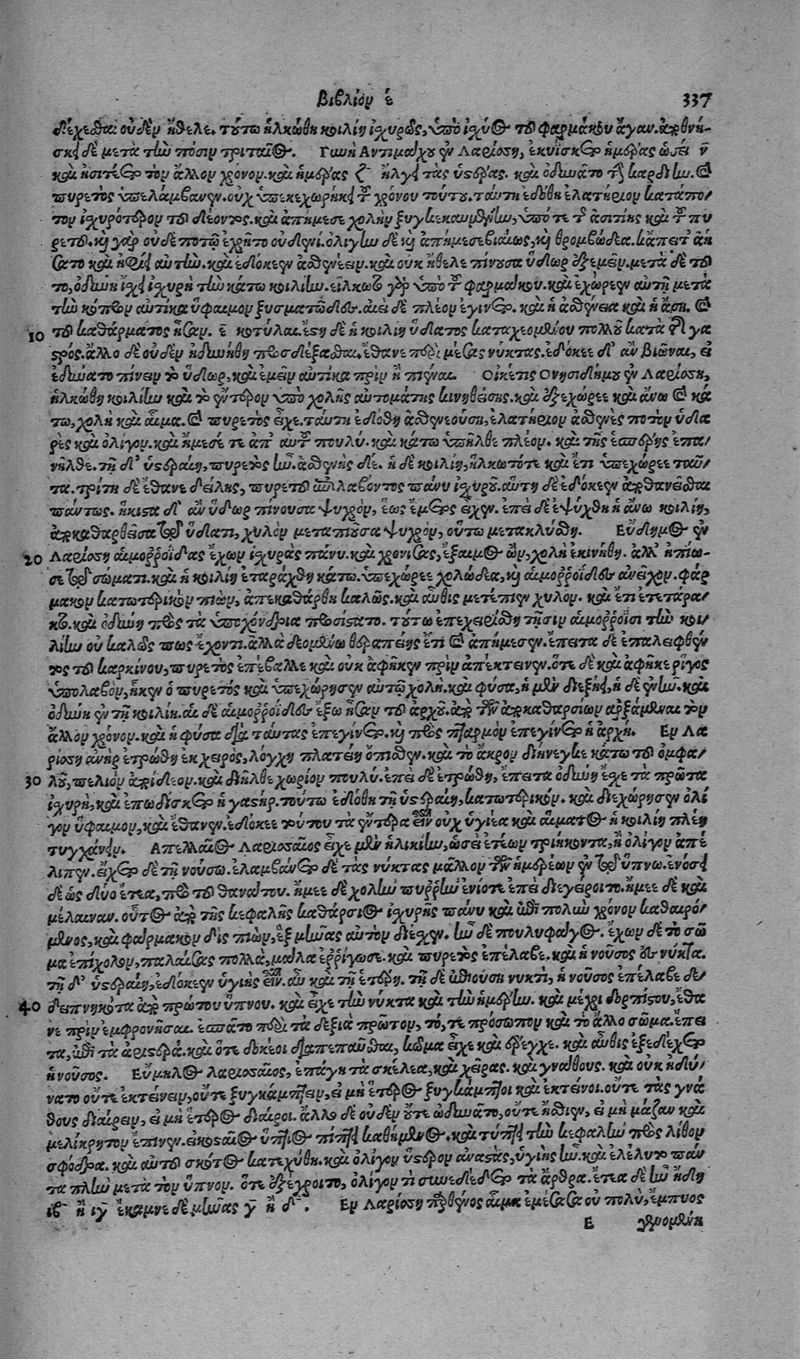 Βιβλίον έ 337
δέχεσθαι οὐδὲν ἤθελε. τούτω ἡλκώθη κοιλίη ἰσχυρῶς, ὑπὸ ἰσχύος τοῦ φαρμάκου ἄγαν. ἀπεθνή-
σκει δὲ μετὰ τὴν πόσιν τριταῖος. Γυνὴ Αντιμάχου ἐν Λαρίσσῃ, ἐκυΐσκετο ἡμέρας ὡσεὶ ν̄
καὶ ἠσίτει τὸν ἄλλον χρόνον. καὶ ἡμέρας ζ ἤλγει τὰς ὑστέρας. καὶ ὀδυνᾶτο τὴν καρδίην. καὶ
πυρετὸς ὑπελάμβανεν. οὐχ ὑπεκεχωρήκει τοῦ χρόνου τούτου. ταύτῃ ἐδόθη ἐλατήριον κατάπο-
τον ἰσχυρότερον τοῦ δέοντος. καὶ ἀπήμεσε χολὴν ξυγκεκαυμένην, ὑπό τε τῆς ἀσιτίης καὶ τοῦ πυ
ρετοῦ. καὶ γὰρ οὐδὲ ποτῷ ἐχρῆτο οὐδενί. ὀλίγην δὲ καὶ ἀπήμεσε βιαίως, καὶ θρομβώδεα. κἄπειτ'
καὶ ἐδόκεεν ἀσθενέειν. καὶ οὐκ ἤθελε πίνουσα ὕδωρ ἐξεμέειν. μετὰ δὲ τοῦ
το, ὀδύνη ἴσχει ἰσχυρὴ τὴν κάτω κοιλίην. εἵλκωτο γὰρ ὑπὸ τοῦ φαρμάκου. καὶ ἐχώρεεν αὐτῇ μετὰ
τὸν κόπρον αὐτίκα ὕφαιμον ξυσματῶδες. ἀεὶ δὲ πλέον ἐγίνετο. καὶ ἡ ἀσθένεια καὶ ἡ ἄση. καὶ
10 τοῦ καθάρματος ἦσαν. ε κοτύλαι. ἔστη δὲ ἡ κοιλίη ὕδατος καταχεομένου πολλοῦ κατὰ τῆς γα
στρός. ἄλλο δὲ οὐδὲν ἠδυνήθη προσδέξασθαι. ἔθανε περὶ μέσας νύκτας. ἐδόκεε δ' ἂν βιῶναι, εἰ
ἐδύνατο πίνειν τὸ ὕδωρ, καὶ ἐμεῖν αὐτίκα πρὶν ἢ πιῆναι. Οἰκέτις Ονησιδήμου ἐν Λαρίσσῃ,
ἡλκώθη κοιλίην καὶ τὸ ἔντερον ὑπὸ χολῆς αὐτομάτης κινηθείσης. καὶ ἐξεχώρεε καὶ ἄνω καὶ κά
τω, χολὴ καὶ αἷμα. καὶ πυρετὸς εἶχε. ταύτῃ ἐδόθη ἀσθενεούσῃ, ἐλατήριον ἀσθενὲς ποτὸν ὑδα
ρὲς καὶ ὀλίγον. καὶ ἤμεσέ τε ἀπ' αὐτοῦ πουλύ. καὶ κάτω ὑπῆλθε πλέον. καὶ τῆς ἑσπέρης ἐπα-
νῆλθε. τῇ δ' ὑστεραίῃ, πυρετὸς ἦν. ἀσθενὴς δέ. ἡ δὲ κοιλίη, ἥλκωτό τε καὶ ἔτι ὑπεχώρεε ταὐ-
τά. τρίτῃ δὲ ἔθανε δείλης, πυρετοῦ ἐπιλαβόντος πάνυ ἰσχυροῦ. αὕτη δὲ ἐδόκεεν ἀποθανεῖσθαι
πάντως. ἥκιστα δ' ἂν ὕδωρ πίνουσα ψυχρόν, ἕως ἔμετος εἶχεν. ἐπεὶ δὲ ἐψύχθη ἡ ἄνω κοιλίη,
ἀποκαθαρθεῖσα τῷ ὕδατι, χυλὸν μεταπιοῦσα ψυχρόν, οὕτω μετακλύσθη. Εὔδημος ἐν
20 Λαρίσσῃ αἱμορροΐδας ἔχων ἰσχυρὰς πάνυ. καὶ χρονίσας, ἔξαιμος ὤν, χολὴ ἐκινήθη.
σε τῷ σώματι. καὶ ἡ κοιλίη ἐταράχθη κάτω. ὑπεχώρεε χολώδεα, καὶ αἱμορροΐδες ἀνεῖχον. φάρ
μακον κατωτερικὸν πιών, ἀπεκαθάρθη καλῶς. καὶ αὖθις μετέπιεν χυλόν. καὶ ἔτι ἐτετάρα-
κτο. καὶ ὀδύνη πρὸς τὰ ὑποχόνδρια προσίστατο. τούτω ἐπεχειρήθη τῇσιν αἱμορροΐσι τὴν κοι-
λίην οὐ καλῶς πως ἔχοντι. ἀλλὰ δεομένω θεραπείης ἔτι καὶ ἀπήμεσεν. ἔπειτα δὲ ἐπαλειφθέν
τος τοῦ καρκίνου, πυρετὸς ἐπέβαλλε καὶ οὐκ ἀφῆκεν πρὶν ἀπέκτεινεν. ὅτε δὲ καὶ ἀφῆκε ῥῖγος
ὑπολαβόν, ἧκεν ὁ πυρετός καὶ ὑπεχώρησεν αὐτῷ χολή. καὶ φῦσα, ἡ μὲν διεξῄει, ἡ δὲ ἐνῆν. καὶ
ὀδύνη ἐν τῇ κοιλίῃ. αἱ δὲ αἱμορροΐδες ἔξω ἦσαν τοῦ ἀρχοῦ. ἀπὸ τῶν ἀποκαθαρσίων ἀρξάμεναι τὸν
ἄλλον χρόνον. καὶ ἡ φῦσα διὰ ταύτας ἐπεγίνετο. καὶ πρὸς πταρμὸν ἐπεγίνετο ἡ ἀρχή. Εν Λα
ρίσσῃ ἀνὴρ ἐτρώθη ἐκ χειρὸς, λόγχῃ πλατείῃ ὄπισθεν. καὶ τὸ ἄκρον διήνεγκε κάτω τοῦ ὀμφα-
30 λοῦ, πελιὸν ἀποιδέον. καὶ διῆλθε χωρίον πουλύ. ἐπεὶ δὲ ἐτρώθη, ἔπειτα ὀδύνη ἔσχε τὰ πρῶτα
ἰσχυρή, καὶ ἐπῳδίσκετο ἡ γαστήρ. τούτω ἐδόθη τῇ ὑστεραίῃ, κατωτερικόν. καὶ διεχώρησεν ὀλί
γον ὕφαιμον, καὶ ἔθανεν. ἐδόκεε τούτου τὰ ἔντερα εἶναι οὐχ ὑγιέα καὶ αἵματος ἡ κοιλίη πλέη
τυγχάνειν. Απελλαῖος Λαρισσαῖος εἶχε μὲν ἡλικίην, ὡσεὶ ἐτέων τριήκοντα, ἢ ὀλίγον ἀπέ
λιπεν. εἴχετο δὲ τῇ νούσῳ. ἐλαμβάνετο δὲ τὰς νύκτας μᾶλλον τῶν ἡμερέων ἐν τῷ ὕπνῳ. ἐνόσει
δὲ ὡς δύο ἔτεα, πρὸ τοῦ θανάτου. ἤμεε δὲ χολὴν πυρρὴν ἐνίοτε ἐπεὶ διεγείροιτο. ἤμεε δὲ καὶ
μέλαιναν. οὗτος ἀπὸ τῆς κεφαλῆς καθάρσιος ἰσχυρῆς πάνυ καὶ ἐπὶ πολὺν χρόνον καθαιρό-
μενος, καὶ φάρμακον δὶς πιών, ἓξ μῆνας αὐτὸν διέχεν. ἦν δὲ πουλυφάγος. ἔχων δὲ τὸ σῶ
μα ἐπίχολον, παλαίσας πολλὰ, μάλα ἐρρίγωσε. καὶ πυρετὸς ἐπέλαβε. καὶ ἡ νοῦσος ἐς νύκτα.
τῇ δ' ὑστεραίῃ, ἐδόκεεν ὑγιὴς εἶναι. καὶ τῇ ἑτέρῃ. τῇ δὲ ἐπιούσῃ νυκτὶ, ἡ νοῦσος ἐπέλαβε δε-
40 δειπνηκότα ἀπὸ πρώτου ὕπνου. καὶ εἶχε τὴν νύκτα καὶ τὴν ἡμέρην. καὶ μέχρι δορπίστου, ἔθα
νε πρὶν ἐμφρονῆσαι. ἐσπᾶτο περὶ τὰ δεξιὰ πρῶτον, τό, τε πρόσωπον καὶ τὸ ἄλλο σῶμα. ἔπει
τα, ἐπὶ τὰ ἀριστερά. καὶ ὅτε δοκέοι διαπεπαῦσθαι, κῶμα εἶχε καὶ ἔρεγχε. καὶ αὖθις ἐξεδέχετο
ἡ νοῦσος. Εὔμηλος λαρισσαῖος, ἐπάγη τὰ σκέλεα, καὶ χεῖρας. καὶ γνάθους. καὶ οὐκ ἠδύ-
νατο οὔτε ἐκτείνειν, οὔτε ξυγκάμπτειν, εἰ μὴ ἕτερος ξυγκάμπτοι καὶ ἐκτείνοι. οὔτε τὰς γνά
θους διαίρειν, εἰ μὴ ἕτερος διαίροι. ἄλλο δὲ οὐδὲν οὔτε ὠδυνᾶτο, οὔτε ἤσθιεν, εἰ μὴ μᾶζαν καὶ
μελίκρητον ἔπινεν. εἰκοσταῖος ὕπτιος πίπτει καθήμενος. καὶ τύπτει τὴν κεφαλὴν πρὸς λίθον
σφόδρα. καὶ αὐτοῦ σκότος κατεχύθη. καὶ ὀλίγον ὕστερον ἀναστὰς, ὑγιὴς ἦν. καὶ ἐλέλυτο πάν
τα πλὴν μετὰ τὸν ὕπνον. ὅτε ἐξέγροιτο, ὀλίγον τι συνεδέδετο τὰ ἄρθρα. ἔτεα δὲ ἦν ἤδη
ιβ ἢ ιγ ἔκαμνε δὲ μῆνας γ ἢ δ. Εν Λαρίσσῃ παρθένος αἷμα ἐμέσασα οὐ πολύ, ἔμπυος
E γενομένη